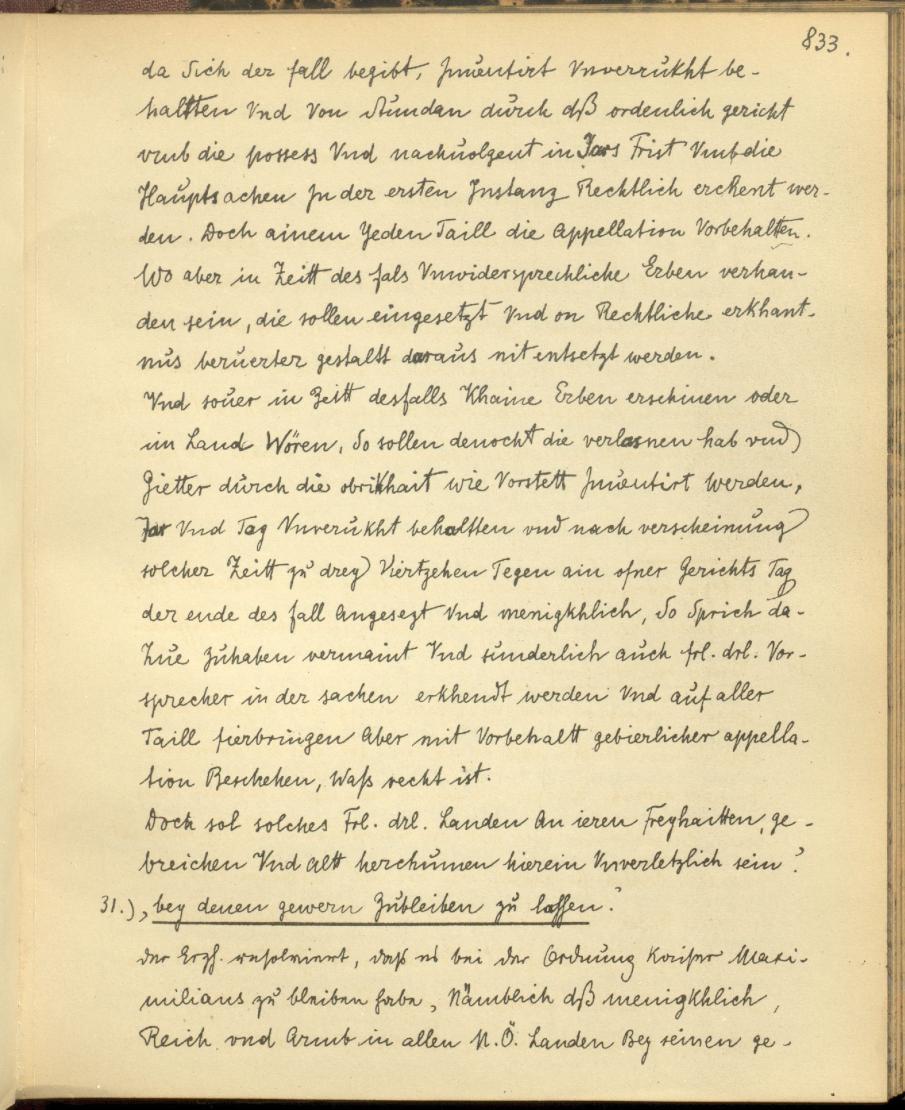 833.
da Sich der fall begibt, Jnuentirt Vnverrukht be-
haltten Vnd Von Stundan durch dß ordenlich gericht
vmb die possess Vnd nachuolgent in Jars Frist Vmb die
Hauptsachen Jn der ersten Jnstanz Rechtlich erckent wer-
den. Doch ainem Yeden Taill die Appellation Vorbehaltten.
Wo aber in Zeitt des fals Vnwidersprechliche Erben verhan-
den sein, die sollen eingesetzt Vnd on Rechtliche erkhant-
nus beruerter gestaltt daraus nit entsetzt werden.
Vnd souer in Zeitt desfalls Khaine Erben erschinen oder
im Land Wören, So sollen denocht die verlasnen hab vnd
Gietter durch die obrikhait wie Vorstett Jnuentirt werden,
Jar Vnd Tag Vnverukht behaltten vnd nach verscheinung
solcher Zeitt zu drey Viertzehen Tegen ain ofner Gerichts Tag
der ende des fall Angesezt Vnd menigkhlich, So Sprich da-
Zue Zuhaben vermaint Vnd sunderlich auch frl. drl. Vor-
sprecher in der sachen erkhendt werden Vnd auf aller
Taill fierbringen Aber mit Vorbehaltt gebierlicher appella-
tion Beschehen, Waß recht ist.
Doch sol solches Frl. drl. Landen An ieren Freyhaitten, ge-
breichen Vnd altt herchumen hierein Vnverletzlich sein?
31.) „bey denen gewern Zubleiben zu lassen."
der Erzh. resolviert, daß es bei der Ordnung Kaiser Maxi-
milians zu bleiben habe, Nämblich dß menigkhlich,
Reich vnd Armb in allen N.Ö. Landen Bey seinen ge-